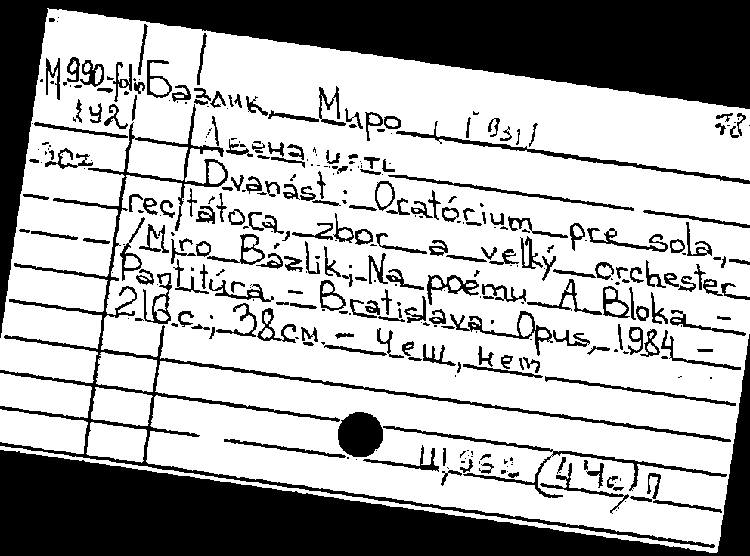 М 990-folio Базлик, Миро (1931) 78
192 Двенадцать
Dvanást : Oratórium pre sola,
recitátora, zbor a veľký orchester
/Miro Bázlik; Na poému A. Bloka -
Partitúra. - Bratislava: Opus, 1984 -
216 с.; 38 см. - Чеш., нем.
Щ962 (4Че) П